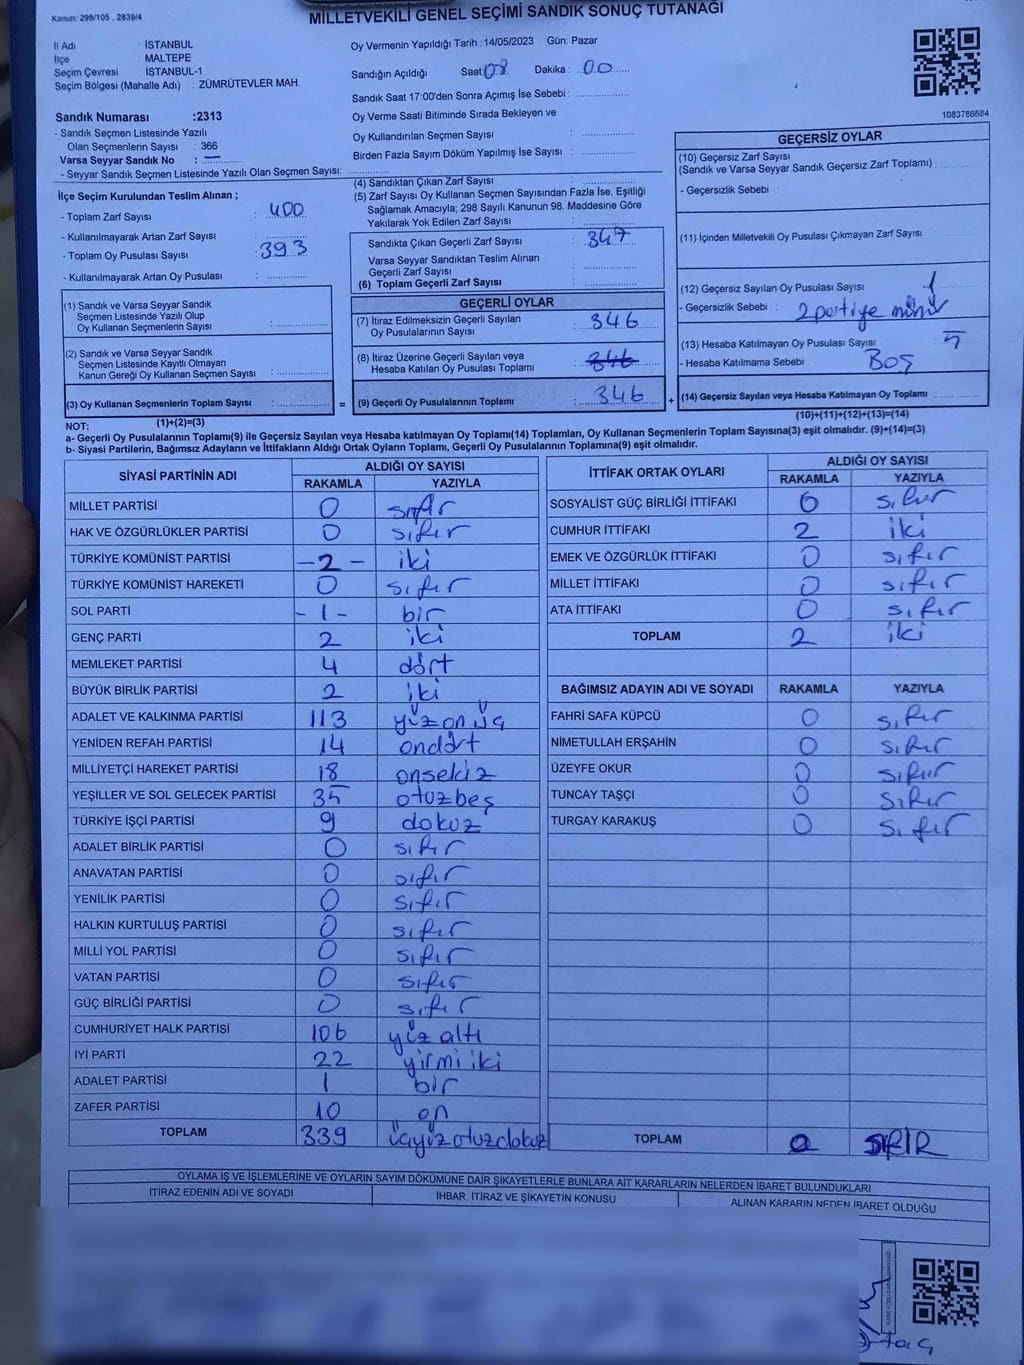 Kanun: 298/105 , 2839/4
MİLLETVEKİLİ GENEL SEÇİMİ SANDIK SONUÇ TUTANAĞI
İl Adı : İSTANBUL
İlçe : MALTEPE
Seçim Çevresi : İSTANBUL-1
Seçim Bölgesi (Mahalle Adı) : ZÜMRÜTEVLER MAH.
Sandık Numarası :2313
- Sandık Seçmen Listesinde Yazılı
Olan Seçmenlerin Sayısı : 366
Varsa Seyyar Sandık No : —
- Seyyar Sandık Seçmen Listesinde Yazılı Olan Seçmen Sayısı:
Oy Vermenin Yapıldığı Tarih :14/05/2023 Gün: Pazar
Sandığın Açıldığı Saat 08 Dakika : 00
Sandık Saat 17:00'den Sonra Açımış İse Sebebi :
Oy Verme Saati Bitiminde Sırada Bekleyen ve
Oy Kullandırılan Seçmen Sayısı :
Birden Fazla Sayım Döküm Yapılmış İse Sayısı :
1083786684
İlçe Seçim Kurulundan Teslim Alınan ;
- Toplam Zarf Sayısı : 400
- Kullanılmayarak Artan Zarf Sayısı :
- Toplam Oy Pusulası Sayısı : 393
- Kullanılmayarak Artan Oy Pusulası :
(1) Sandık ve Varsa Seyyar Sandık
Seçmen Listesinde Yazılı Olup
Oy Kullanan Seçmenlerin Sayısı :
(2) Sandık ve Varsa Seyyar Sandık
Seçmen Listesinde Kayıtlı Olmayan
Kanun Gereği Oy Kullanan Seçmen Sayısı :
(3) Oy Kullanan Seçmenlerin Toplam Sayısı :
(1)+(2)=(3)
(4) Sandıktan Çıkan Zarf Sayısı :
(5) Zarf Sayısı Oy Kullanan Seçmen Sayısından Fazla İse, Eşitliği
Sağlamak Amacıyla; 298 Sayılı Kanunun 98. Maddesine Göre
Yakılarak Yok Edilen Zarf Sayısı :
Sandıkta Çıkan Geçerli Zarf Sayısı : 347
Varsa Seyyar Sandıktan Teslim Alınan
Geçerli Zarf Sayısı :
(6) Toplam Geçerli Zarf Sayısı :
GEÇERLİ OYLAR
(7) İtiraz Edilmeksizin Geçerli Sayılan
Oy Pusulalarının Sayısı : 346
(8) İtiraz Üzerine Geçerli Sayılan veya
Hesaba Katılan Oy Pusulası Toplamı : 346
= (9) Geçerli Oy Pusulalarının Toplamı : 346 +
GEÇERSİZ OYLAR
(10) Geçersiz Zarf Sayısı
(Sandık ve Varsa Seyyar Sandık Geçersiz Zarf Toplamı) :
- Geçersizlik Sebebi :
(11) İçinden Milletvekili Oy Pusulası Çıkmayan Zarf Sayısı :
(12) Geçersiz Sayılan Oy Pusulası Sayısı : 1
- Geçersizlik Sebebi : 2 partiye mühür
(13) Hesaba Katılmayan Oy Pusulası Sayısı : 5
- Hesaba Katılmama Sebebi : BOŞ
(14) Geçersiz Sayılan veya Hesaba Katılmayan Oy Toplamı :
(10)+(11)+(12)+(13)=(14)
NOT:
a- Geçerli Oy Pusulalarının Toplamı(9) ile Geçersiz Sayılan veya Hesaba katılmayan Oy Toplamı(14) Toplamları, Oy Kullanan Seçmenlerin Toplam Sayısına(3) eşit olmalıdır. (9)+(14)=(3)
b- Siyasi Partilerin, Bağımsız Adayların ve İttifakların Aldığı Ortak Oyların Toplamı, Geçerli Oy Pusulalarının Toplamına(9) eşit olmalıdır.
SİYASİ PARTİNİN ADI ALDIĞI OY SAYISI
RAKAMLA YAZIYLA
MİLLET PARTİSİ 0 sıfır
HAK VE ÖZGÜRLÜKLER PARTİSİ 0 sıfır
TÜRKİYE KOMÜNİST PARTİSİ -2- iki
TÜRKİYE KOMÜNİST HAREKETİ 0 sıfır
SOL PARTİ -1- bir
GENÇ PARTİ 2 iki
MEMLEKET PARTİSİ 4 dört
BÜYÜK BİRLİK PARTİSİ 2 iki
ADALET VE KALKINMA PARTİSİ 113 yüz on üç
YENİDEN REFAH PARTİSİ 14 ondört
MİLLİYETÇİ HAREKET PARTİSİ 18 onsekiz
YEŞİLLER VE SOL GELECEK PARTİSİ 35 otuzbeş
TÜRKİYE İŞÇİ PARTİSİ 9 dokuz
ADALET BİRLİK PARTİSİ 0 sıfır
ANAVATAN PARTİSİ 0 sıfır
YENİLİK PARTİSİ 0 sıfır
HALKIN KURTULUŞ PARTİSİ 0 sıfır
MİLLİ YOL PARTİSİ 0 sıfır
VATAN PARTİSİ 0 sıfır
GÜÇ BİRLİĞİ PARTİSİ 0 sıfır
CUMHURİYET HALK PARTİSİ 106 yüz altı
İYİ PARTİ 22 yirmi iki
ADALET PARTİSİ 1 bir
ZAFER PARTİSİ 10 on
TOPLAM 339 üçyüzotuzdokuz
İTTİFAK ORTAK OYLARI ALDIĞI OY SAYISI
RAKAMLA YAZIYLA
SOSYALİST GÜÇ BİRLİĞİ İTTİFAKI 0 sıfır
CUMHUR İTTİFAKI 2 iki
EMEK VE ÖZGÜRLÜK İTTİFAKI 0 sıfır
MİLLET İTTİFAKI 0 sıfır
ATA İTTİFAKI 0 sıfır
TOPLAM 2 iki
BAĞIMSIZ ADAYIN ADI VE SOYADI RAKAMLA YAZIYLA
FAHRİ SAFA KÜPCÜ 0 sıfır
NİMETULLAH ERŞAHİN 0 sıfır
ÜZEYFE OKUR 0 sıfır
TUNCAY TAŞÇI 0 sıfır
TURGAY KARAKUŞ 0 sıfır
TOPLAM 0 SIFIR
OYLAMA İŞ VE İŞLEMLERİNE VE OYLARIN SAYIM DÖKÜMÜNE DAİR ŞİKAYETLERLE BUNLARA AİT KARARLARIN NELERDEN İBARET BULUNDUKLARI
İTİRAZ EDENİN ADI VE SOYADI İHBAR, İTİRAZ VE ŞİKAYETİN KONUSU ALINAN KARARIN NEDEN İBARET OLDUĞU